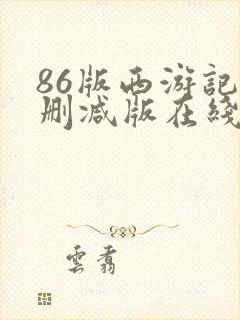 86版西游記
删减版在綫
雲看